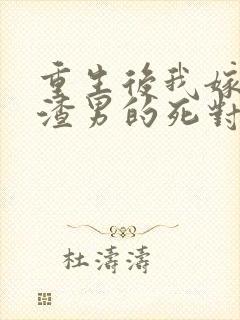 重生後我嫁
渣男的死對
杜濤濤